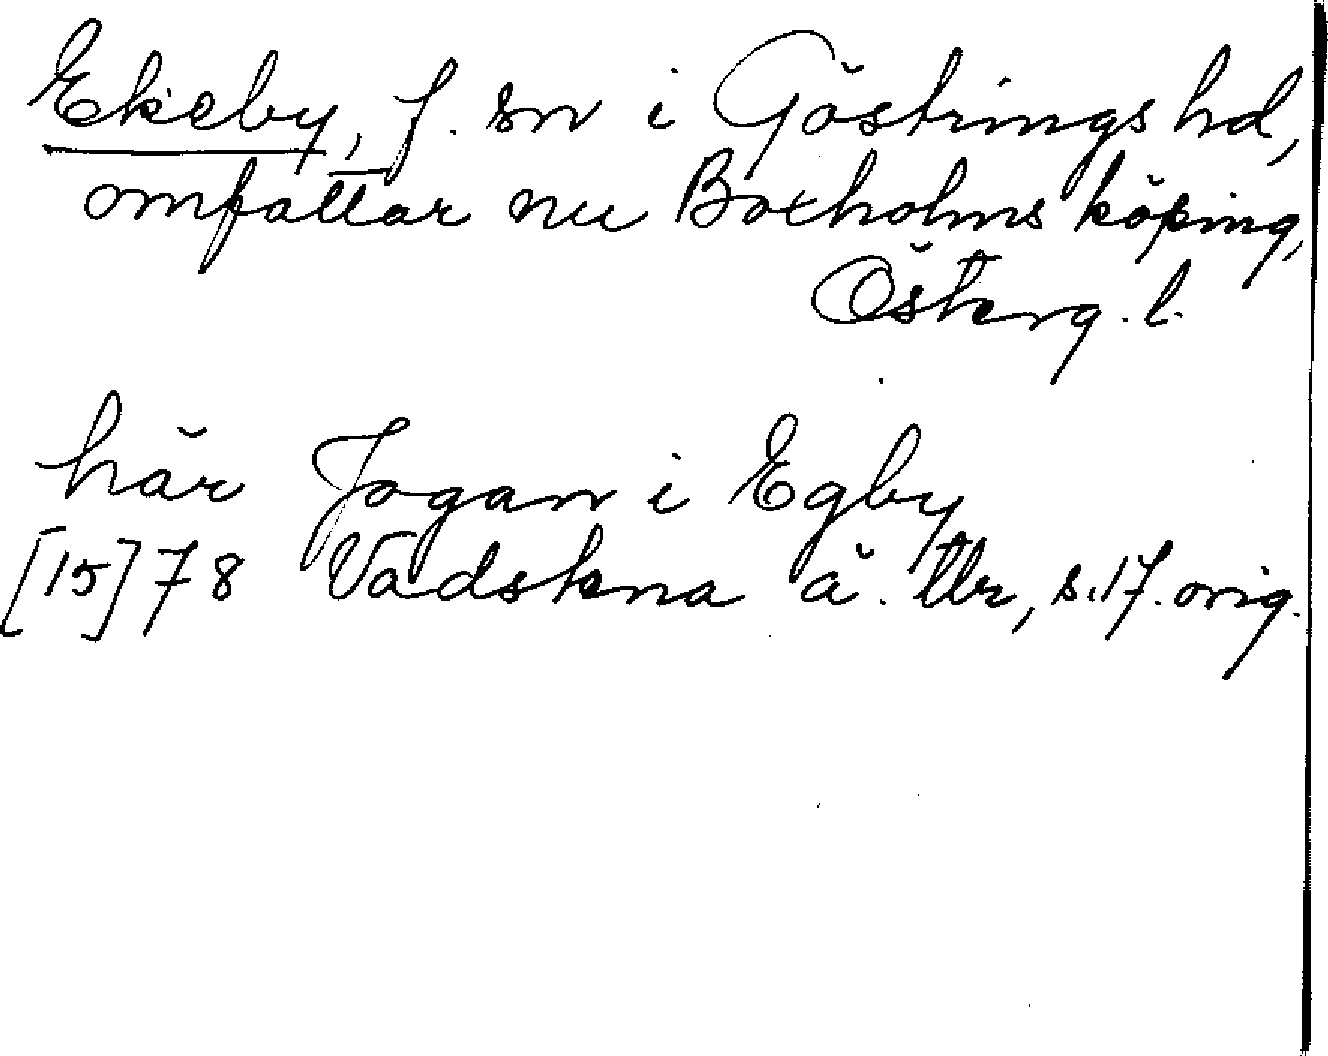 Ekeby, f. sn i Göstrings hd,
omfattar nu Boxholms köping,
Österg. l.
här Jogan i Egby
[15]78 Vadstena ä. tlr, s.17. orig.